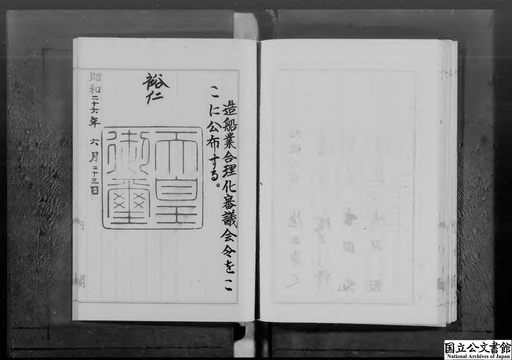 造船業合理化審議会令をこ
こに公布する。
裕仁
天皇
御璽
昭和二十六年六月二十三日
国立公文書館
National Archives of Japan